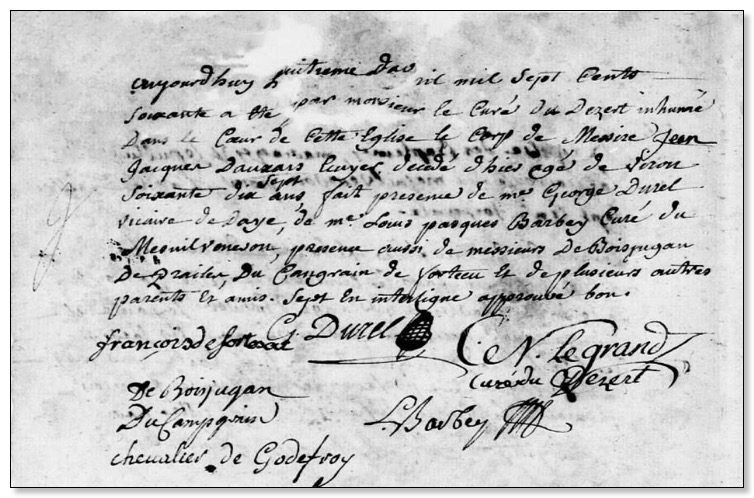 aujourdhuy huitieme davril mil sept cents
soixante a ete par monsieur le Curé du Dezert inhumé
Dans le Cœur de Cette Eglise le Corp de Messire Jean
Jacques Dauxais Ecuyer decedé d'hier agé de viron
soixante dix sept ans, fait presence de me George Durel
vicaire de Daye, de me Louis pasques Barbey Curé du
Mesnil voneron, presence aussi de messieurs De Boisjugan
De Prailes, Du Cangrain de fortecu Et de plusieurs autres
parents Et amis. sept En interligne approuvé bon.
françois de G. Durel C. N. le grand
Curé du Dezert
De Boisjugan
Du Campgrain L. Barbey
chevalier de Godefroy